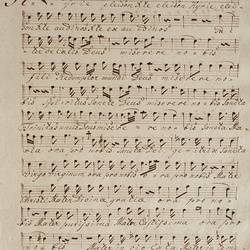 Kyrie eleison Xte eleison Kyrie elei
son Xte audi nos Xte ex au di nos
de Caelis Deus mi se re re no bis
fili Redemptor mundi Deus misere re no
bis Spiritus Sancte Deus mi se re re no bis Sancta
Trinitas unus Deus mise re re no bis Sancta Ma
ria ora pro no bis Sancta Dei genitrix Sancta
Virgo virginum ora pro nobis ora pro nobis Mater
Christi Mater Divinae gratiae ora pro no
bis Mater purissima Mater castissima ora pro
Mater